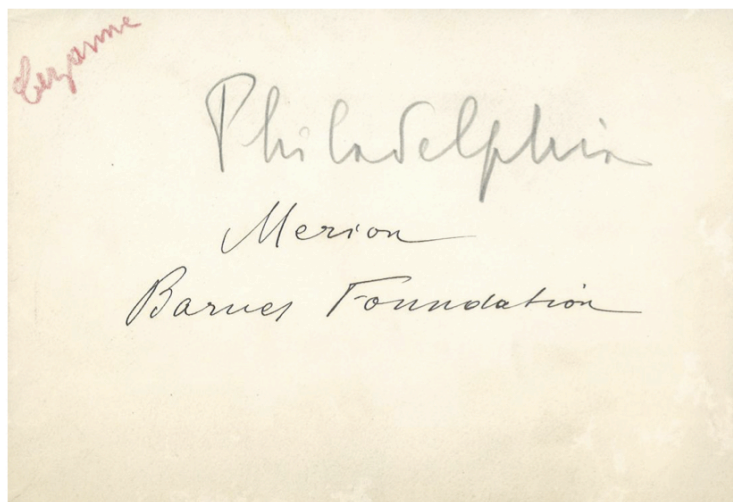 Cezanne
Philadelphia
Merion
Barnes Foundation